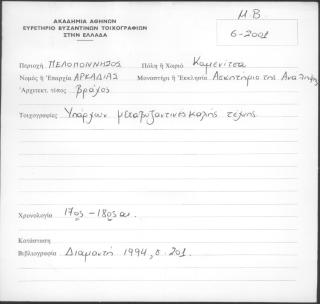 ΑΚΑΔΗΜΙΑ ΑΘΗΝΩΝ
ΕΥΡΕΤΗΡΙΟ ΒΥΖΑΝΤΙΝΩΝ ΤΟΙΧΟΓΡΑΦΙΩΝ
ΣΤΗΝ ΕΛΛΑΔΑ
Μ.Β.
6-2001
Περιοχή ΠΕΛΟΠΟΝΝΗΣΟΣ Πόλη ή Χωριό Καμενίτσα
Νομός ή Ἐπαρχία ΑΡΚΑΔΙΑΣ Μοναστήρι ή Ἐκκλησία Ασκηταριό της Αναλήψης
Ἀρχιτεκτ. τύπος Βράχος
Τοιχογραφίες Υπάρχουν μεταβυζαντινές καλής τέχνης
Χρονολογία 17ος - 18ος αι.
Κατάσταση
Βιβλιογραφία Διαμαντή 1994, σ. 201.